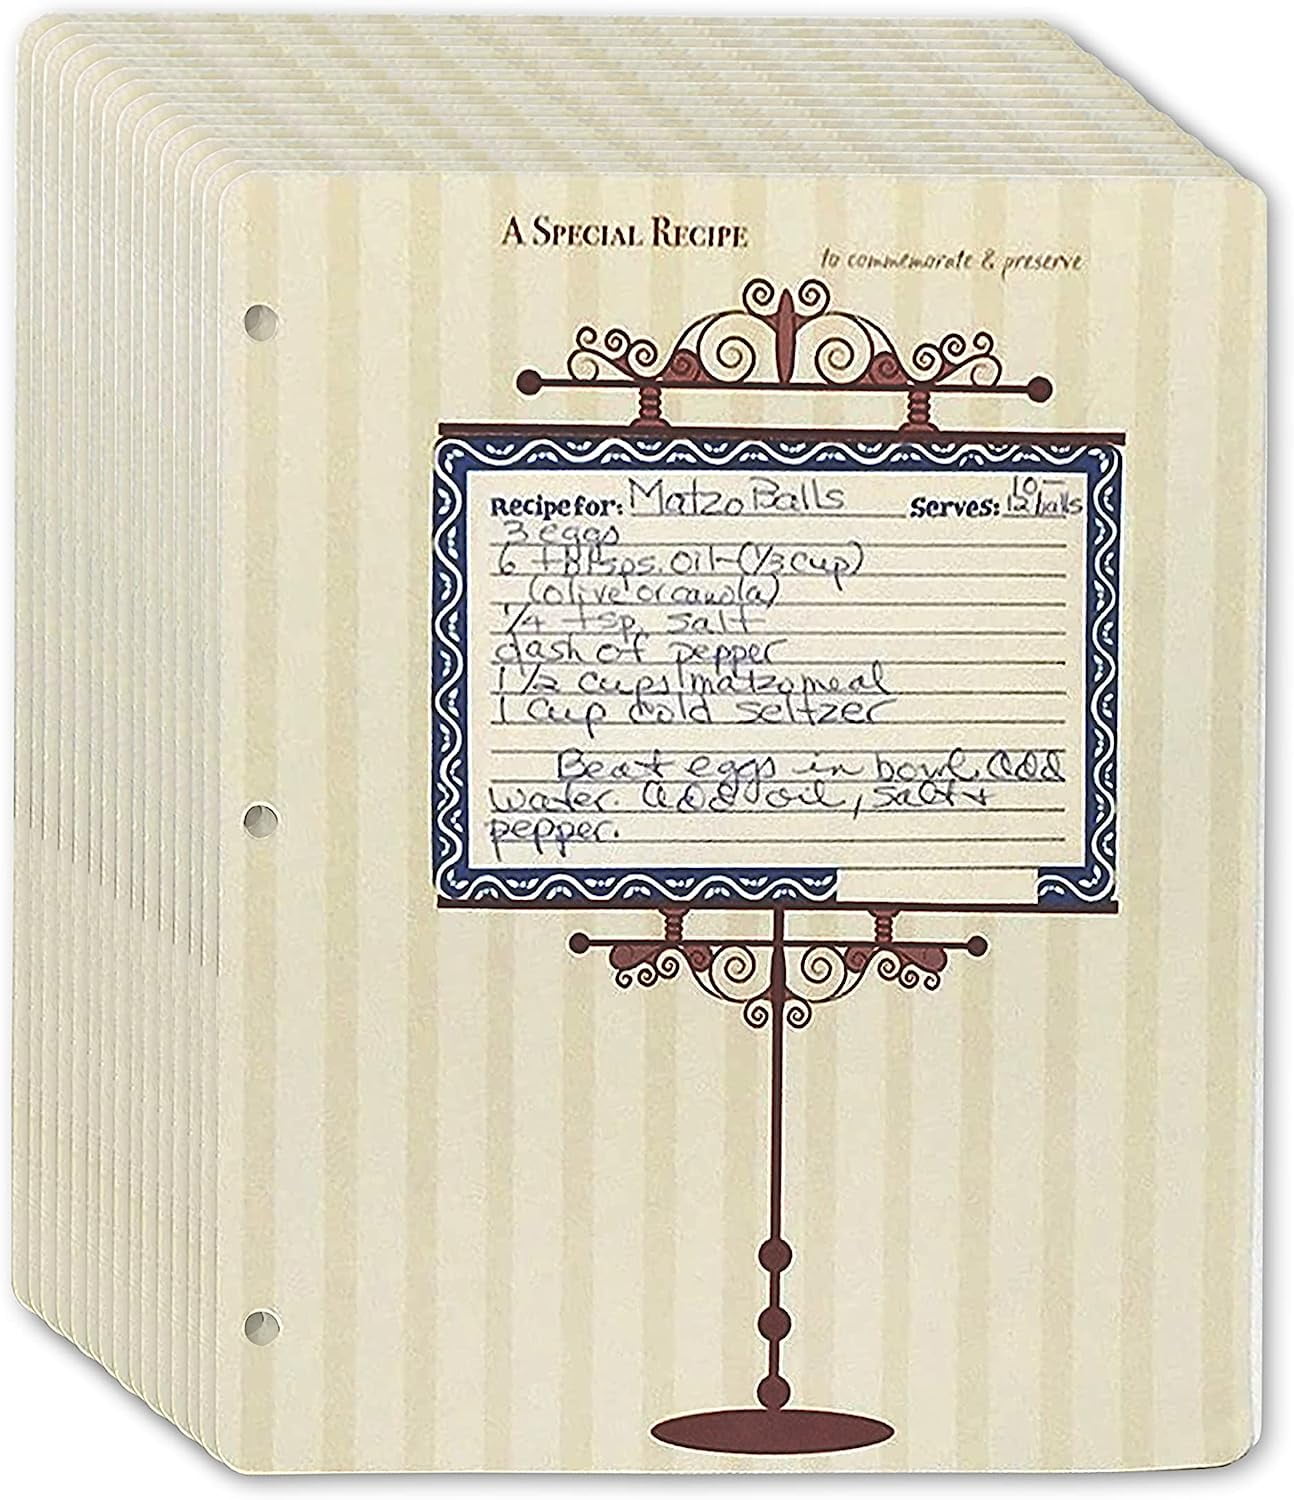 A SPECIAL RECIPE
to commemorate & preserve
Recipe for: Matzo Balls Serves: 10-12 balls
3 eggs
6 tblsps. oil-(1/3 cup)
(olive or canola)
1/4 tsp. salt
dash of pepper
1 1/2 cups matzo meal
1 cup cold seltzer
Beat eggs in bowl. Add
water. Add oil, salt +
pepper.